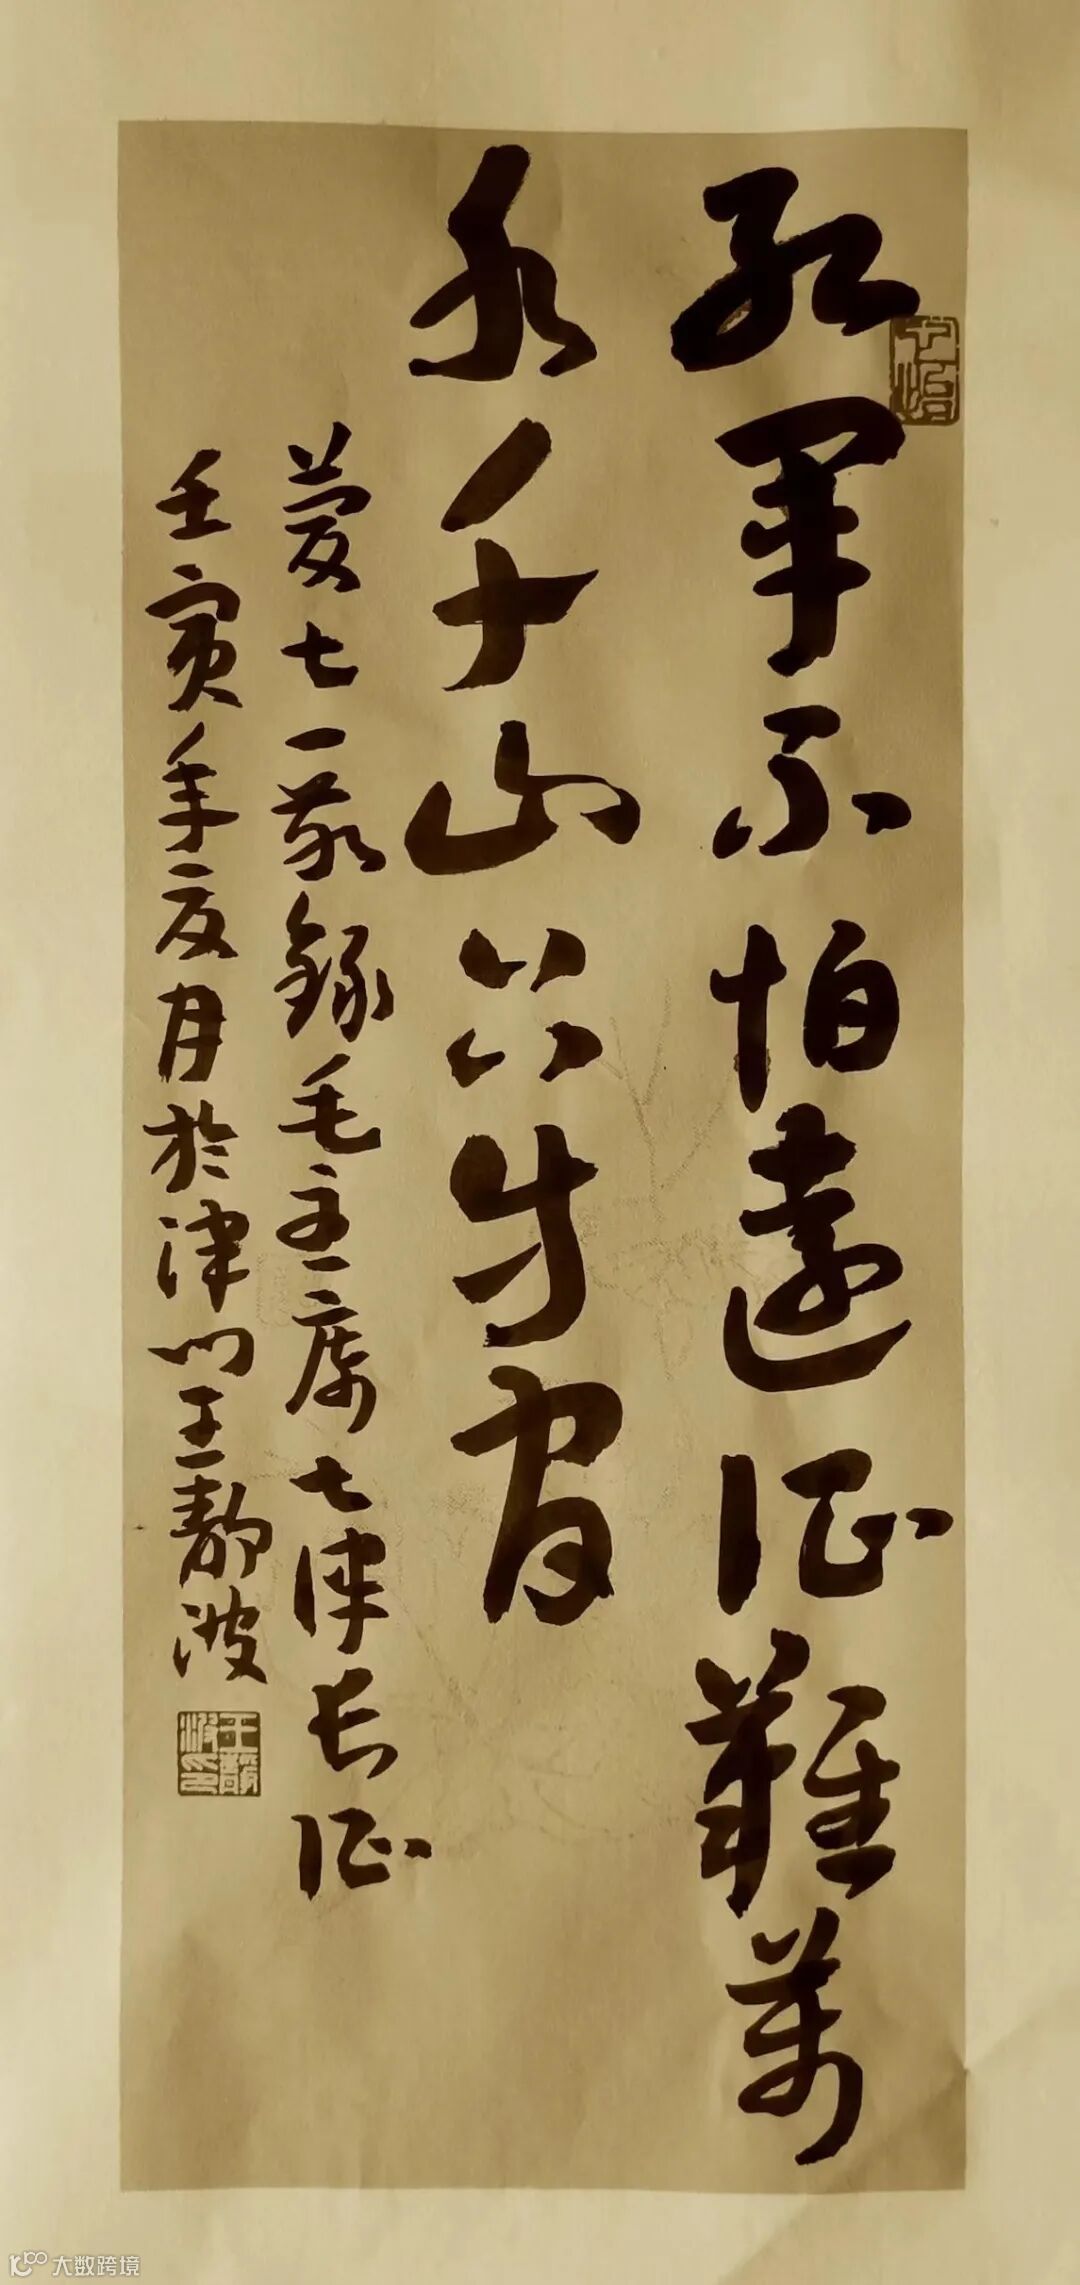 紅軍不怕遠征難萬
水千山只等閒
慶七一敬錄毛主席七律長征
壬寅年夏月於津門王靜波
王靜波印
大数跨境